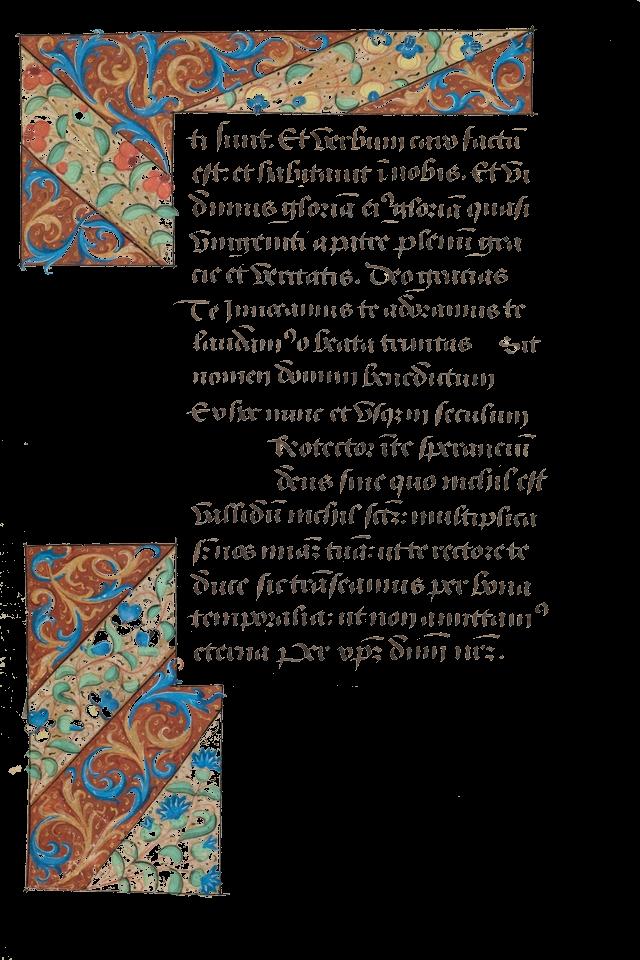 ti sunt. Et verbum caro factū
est: et habitauit ī nobis. Et vi
dimus gloriā eiꝰ gloriā quasi
vnigeniti a patre plenū gra
cie et veritatis. Deo gracias
Te Inuocamus te adoramus te
laudamꝰ o beata trinitas Sit
nomen domini benedictum
Ex hoc nunc et vsqꝫ in seculum
Rotector ī te sperancíū
deus sine quo nichil est
vallidū nichil sctꝫ: multiplica
sꝫ nos miāꝫ tuā: ut te rectore te
duce sic trāseamus per bona
temporalia: ut non amittamꝰ
eterna Per xp̄ꝫ dn̄m nr̄ꝫ.